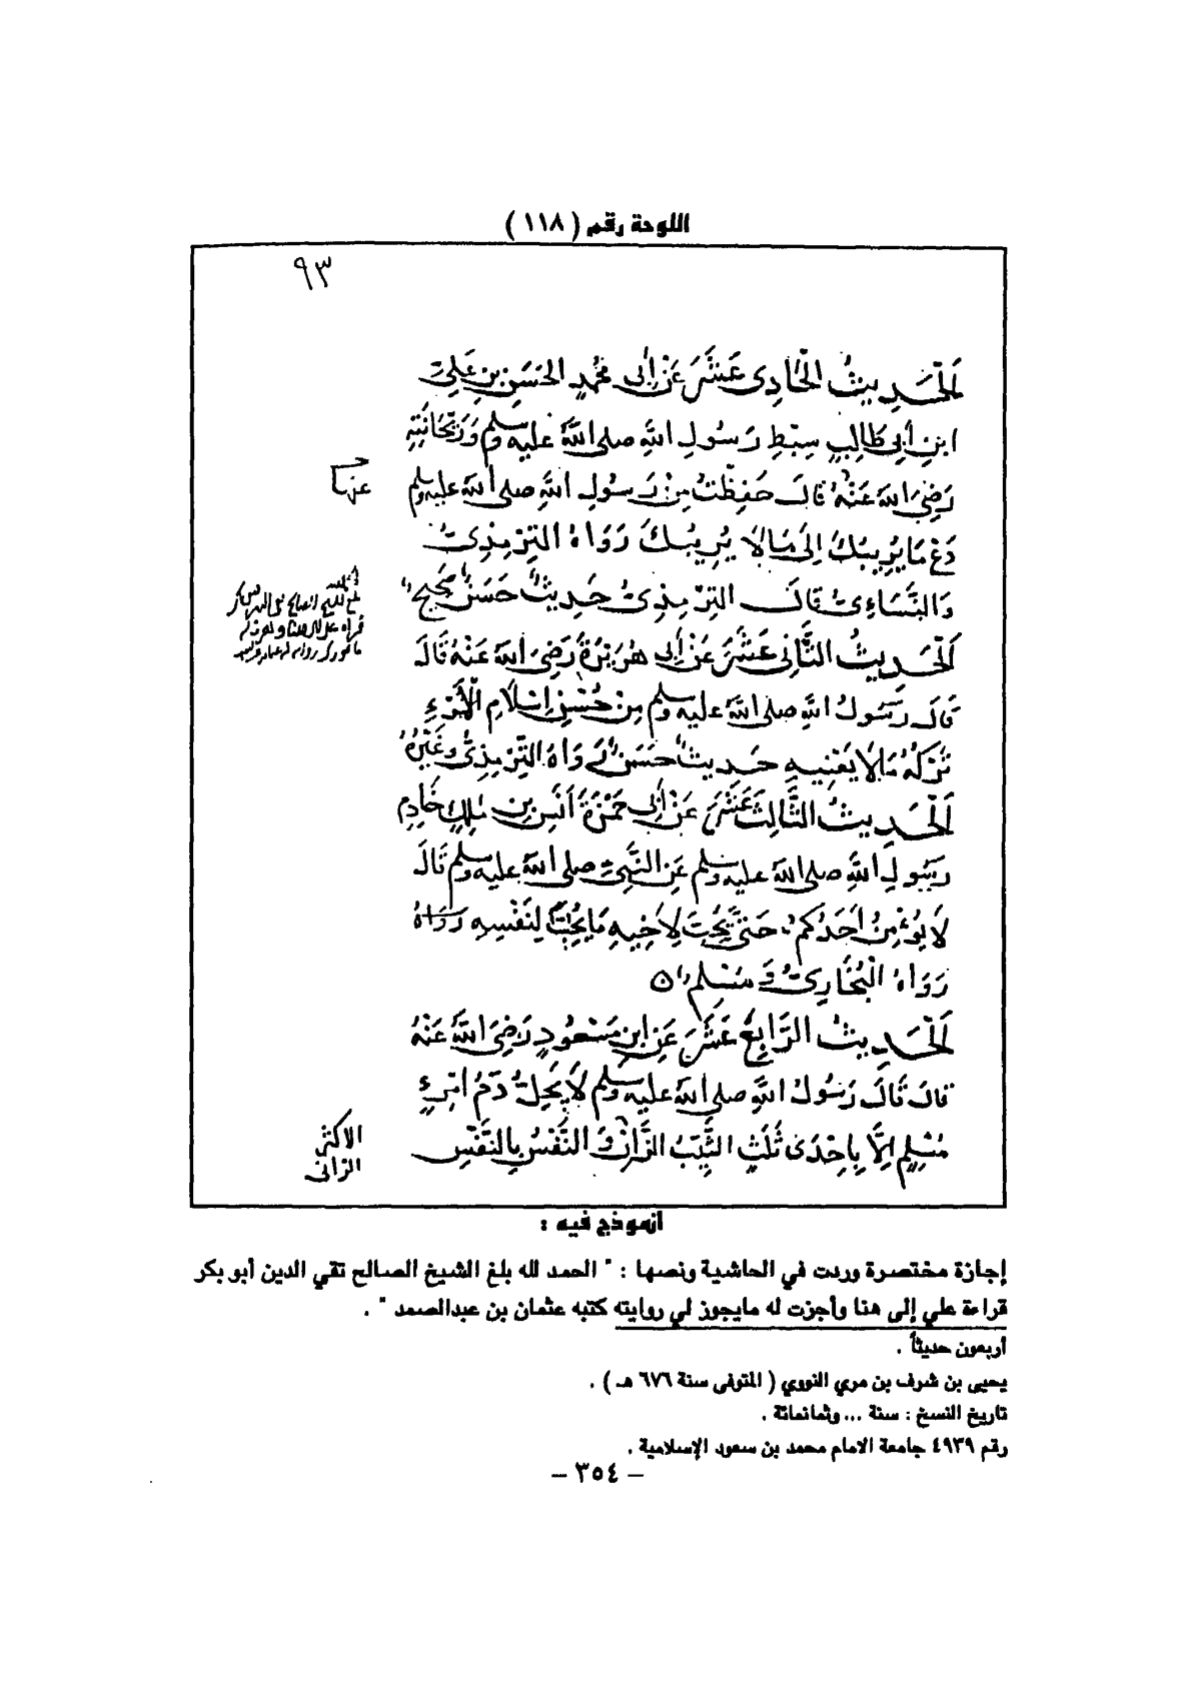 اللوحة رقم ( ١١٨ )
٩٣
اَلْحَدِيثُ الْحَادِى عَشَرَ عَنْ اَبِى مُحَمَّدٍ الْحَسَنِ بْنِ عَلِيِّ
ابْنِ اَبِى طَالِبٍ سِبْطِ رَسُولِ اللَّهِ صلى اللَّهُ عليه وسلم وَرَيْحَانَتِهِ
رَضِىَ اللَّهُ عَنْهُ قَالَ حَفِظْتُ مِنْ رَسُولِ اللَّهِ صلى اللَّهُ عليه وسلم
دَعْ مَا يُرِيبُكَ اِلَى مَالَا يُرِيبُكَ رَوَاهُ التِّرْمِذِىُّ
وَالنَّسَاءِىُّ قَالَ التِّرْمِذِىُّ حَدِيثٌ حَسَنٌ صَحِيحٌ
اَلْحَدِيثُ الثَّانِى عَشَرَ عَنْ اَبِى هُرَيْرَةَ رَضِىَ اللَّهُ عَنْهُ قَالَ
قَالَ رَسُولُ اللَّهِ صلى اللَّهُ عليه وسلم مِنْ حُسْنِ اِسْلَامِ الْمَرْءِ
تَرْكُهُ مَالَا يَعْنِيهِ حَدِيثٌ حَسَنٌ رَوَاهُ التِّرْمِذِىُّ وَغَيْرُهُ
اَلْحَدِيثُ الثَّالِثَ عَشَرَ عَنْ اَبِى حَمْزَةَ اَنَسِ بْنِ مٰلِكٍ خَادِمِ
رَسُولِ اللَّهِ صلى اللَّهُ عليه وسلم عَنِ النَّبِىِّ صلى اللَّهُ عليه وسلم قَالَ
لَا يُؤْمِنُ اَحَدُكُمْ حَتَّى يُحِبَّ لِاَخِيهِ مَا يُحِبُّ لِنَفْسِهِ رَوَاهُ
رَوَاهُ الْبُخَارِىُّ وَ مُسْلِمٌ
اَلْحَدِيثُ الرَّابِعَ عَشَرَ عَنِ ابْنِ مَسْعُودٍ رَضِىَ اللَّهُ عَنْهُ
قَالَ قَالَ رَسُولُ اللَّهِ صلى اللَّهُ عليه وسلم لَا يَحِلُّ دَمُ امْرِئٍ
مُسْلِمٍ اِلَّا بِاِحْدَى ثَلٰثٍ الثَّيِّبُ الزَّانِ وَ النَّفْسُ بِالنَّفْسِ
الاكثر
الزانى
أنموذج فيه :
إجازة مختصرة وردت في الحاشية ونصها : " الحمد لله بلغ الشيخ الصالح تقي الدين أبو بكر
قراءة علي إلى هنا وأجزت له مايجوز لي روايته كتبه عثمان بن عبدالصمد " .
أربعون حديثاً .
يحيى بن شرف بن مري النووي ( المتوفى سنة ٦٧٦ هـ ) .
تاريخ النسخ : سنة ... وثمانمائة .
رقم ٤٩٣٩ جامعة الامام محمد بن سعود الإسلامية .
– ٣٥٤ –